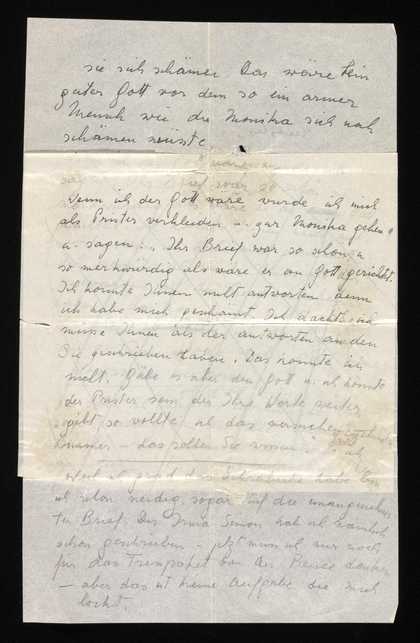 sie sich schämen. Das wäre kein
guter Gott vor dem so ein armer
Mensch wie die Monika sich noch
schämen müsste
Wenn ich der Gott wäre würde ich mich
als Priester verkleiden u. zur Monika gehen
u. sagen: Ihr Brief war so schön u.
so merkwürdig als wäre er an Gott gerichtet.
Ich konnte Ihnen nicht antworten denn
ich habe mich geschämt. Ich dachte ich
müsse Ihnen als der antworten an den
Sie geschrieben haben. Das konnte ich
nicht. Gäbe es aber den Gott u. ich könnte
der Priester sein der Ihre Worte weiter
gibt so wollte ich das
– das sollen Sie wissen.
ich schon neidig, sogar auf die
Brief. Der Irma Simon hab ich nämlich
schon geschrieben – jetzt muss ich nur noch
für das danken
– aber das ist keine Aufgabe die mich
lockt.